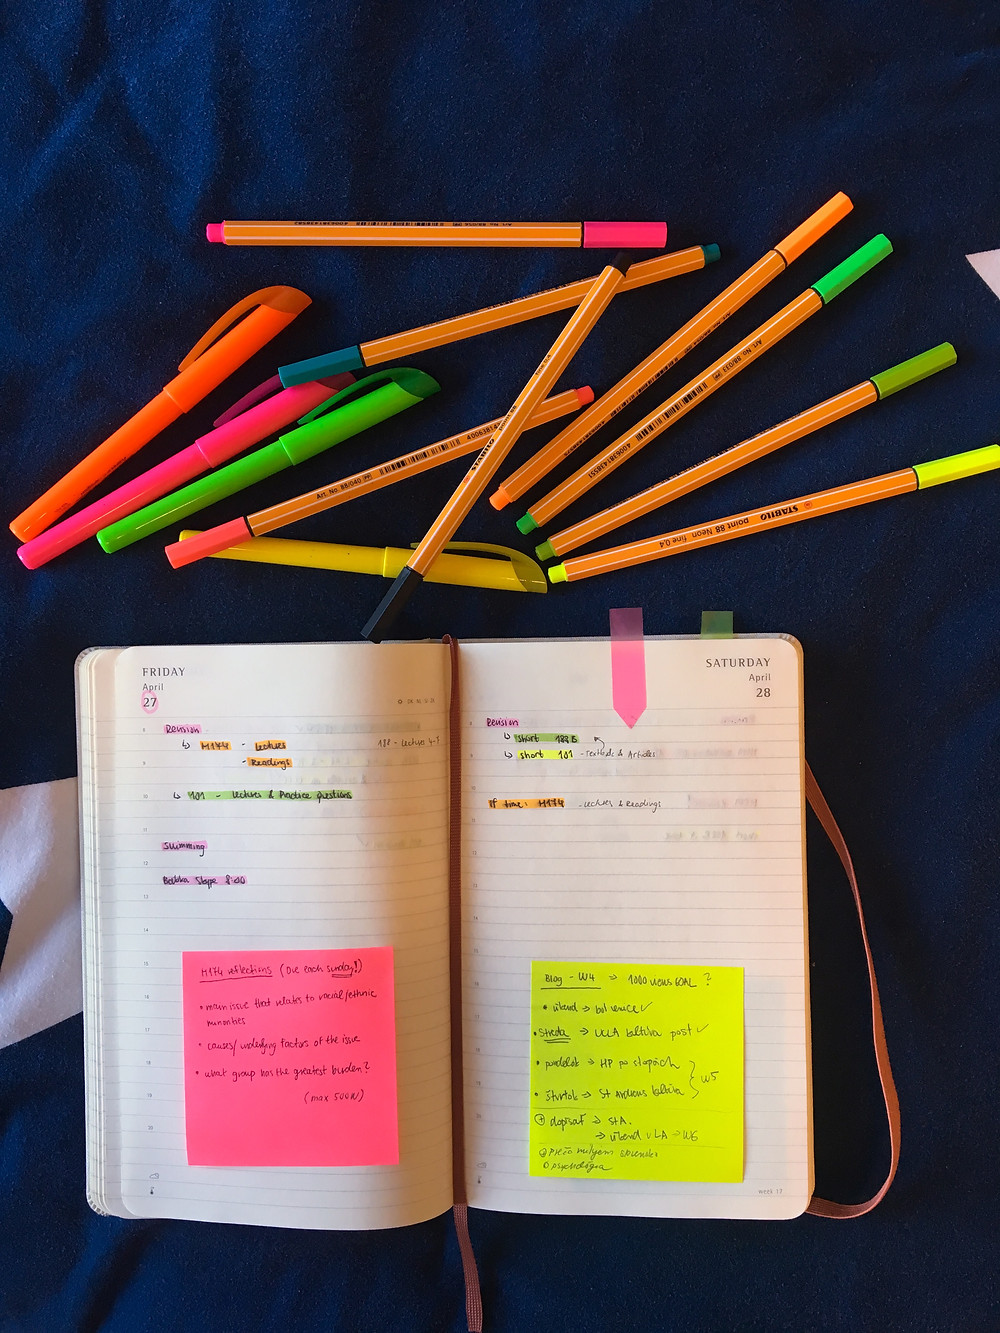 Art. No. 88/040
STABILO
STABILO point 88 Neon fine 0,4
FRIDAY
April
27
Revision
↳ H174 - Lectures
- Readings
188 - Lectures 4-7
↳ 101 - Lectures & Practice Questions
Swimming
8:00
H174 reflections (one each sunday!)
• main issue that relates to racial/ethnic
minorities
• causes/underlying factors of the issue
• what group has the greatest burden?
(max 500W)
SATURDAY
April
28
Revision
↳ Short 188B
↳ Short 101 - Textbook & Articles
If time: H174 - Lectures & Readings
Blog - W4 → 1000 views GOAL?
• víkend → ✓
• Streda → UCLA kultúra post ✓
• pondelok → HP po stopách
• štvrtok → St Andrews kultúra
} W5
+ dopísať → StA.
→ víkend v LA → W6
psychológia
week 17